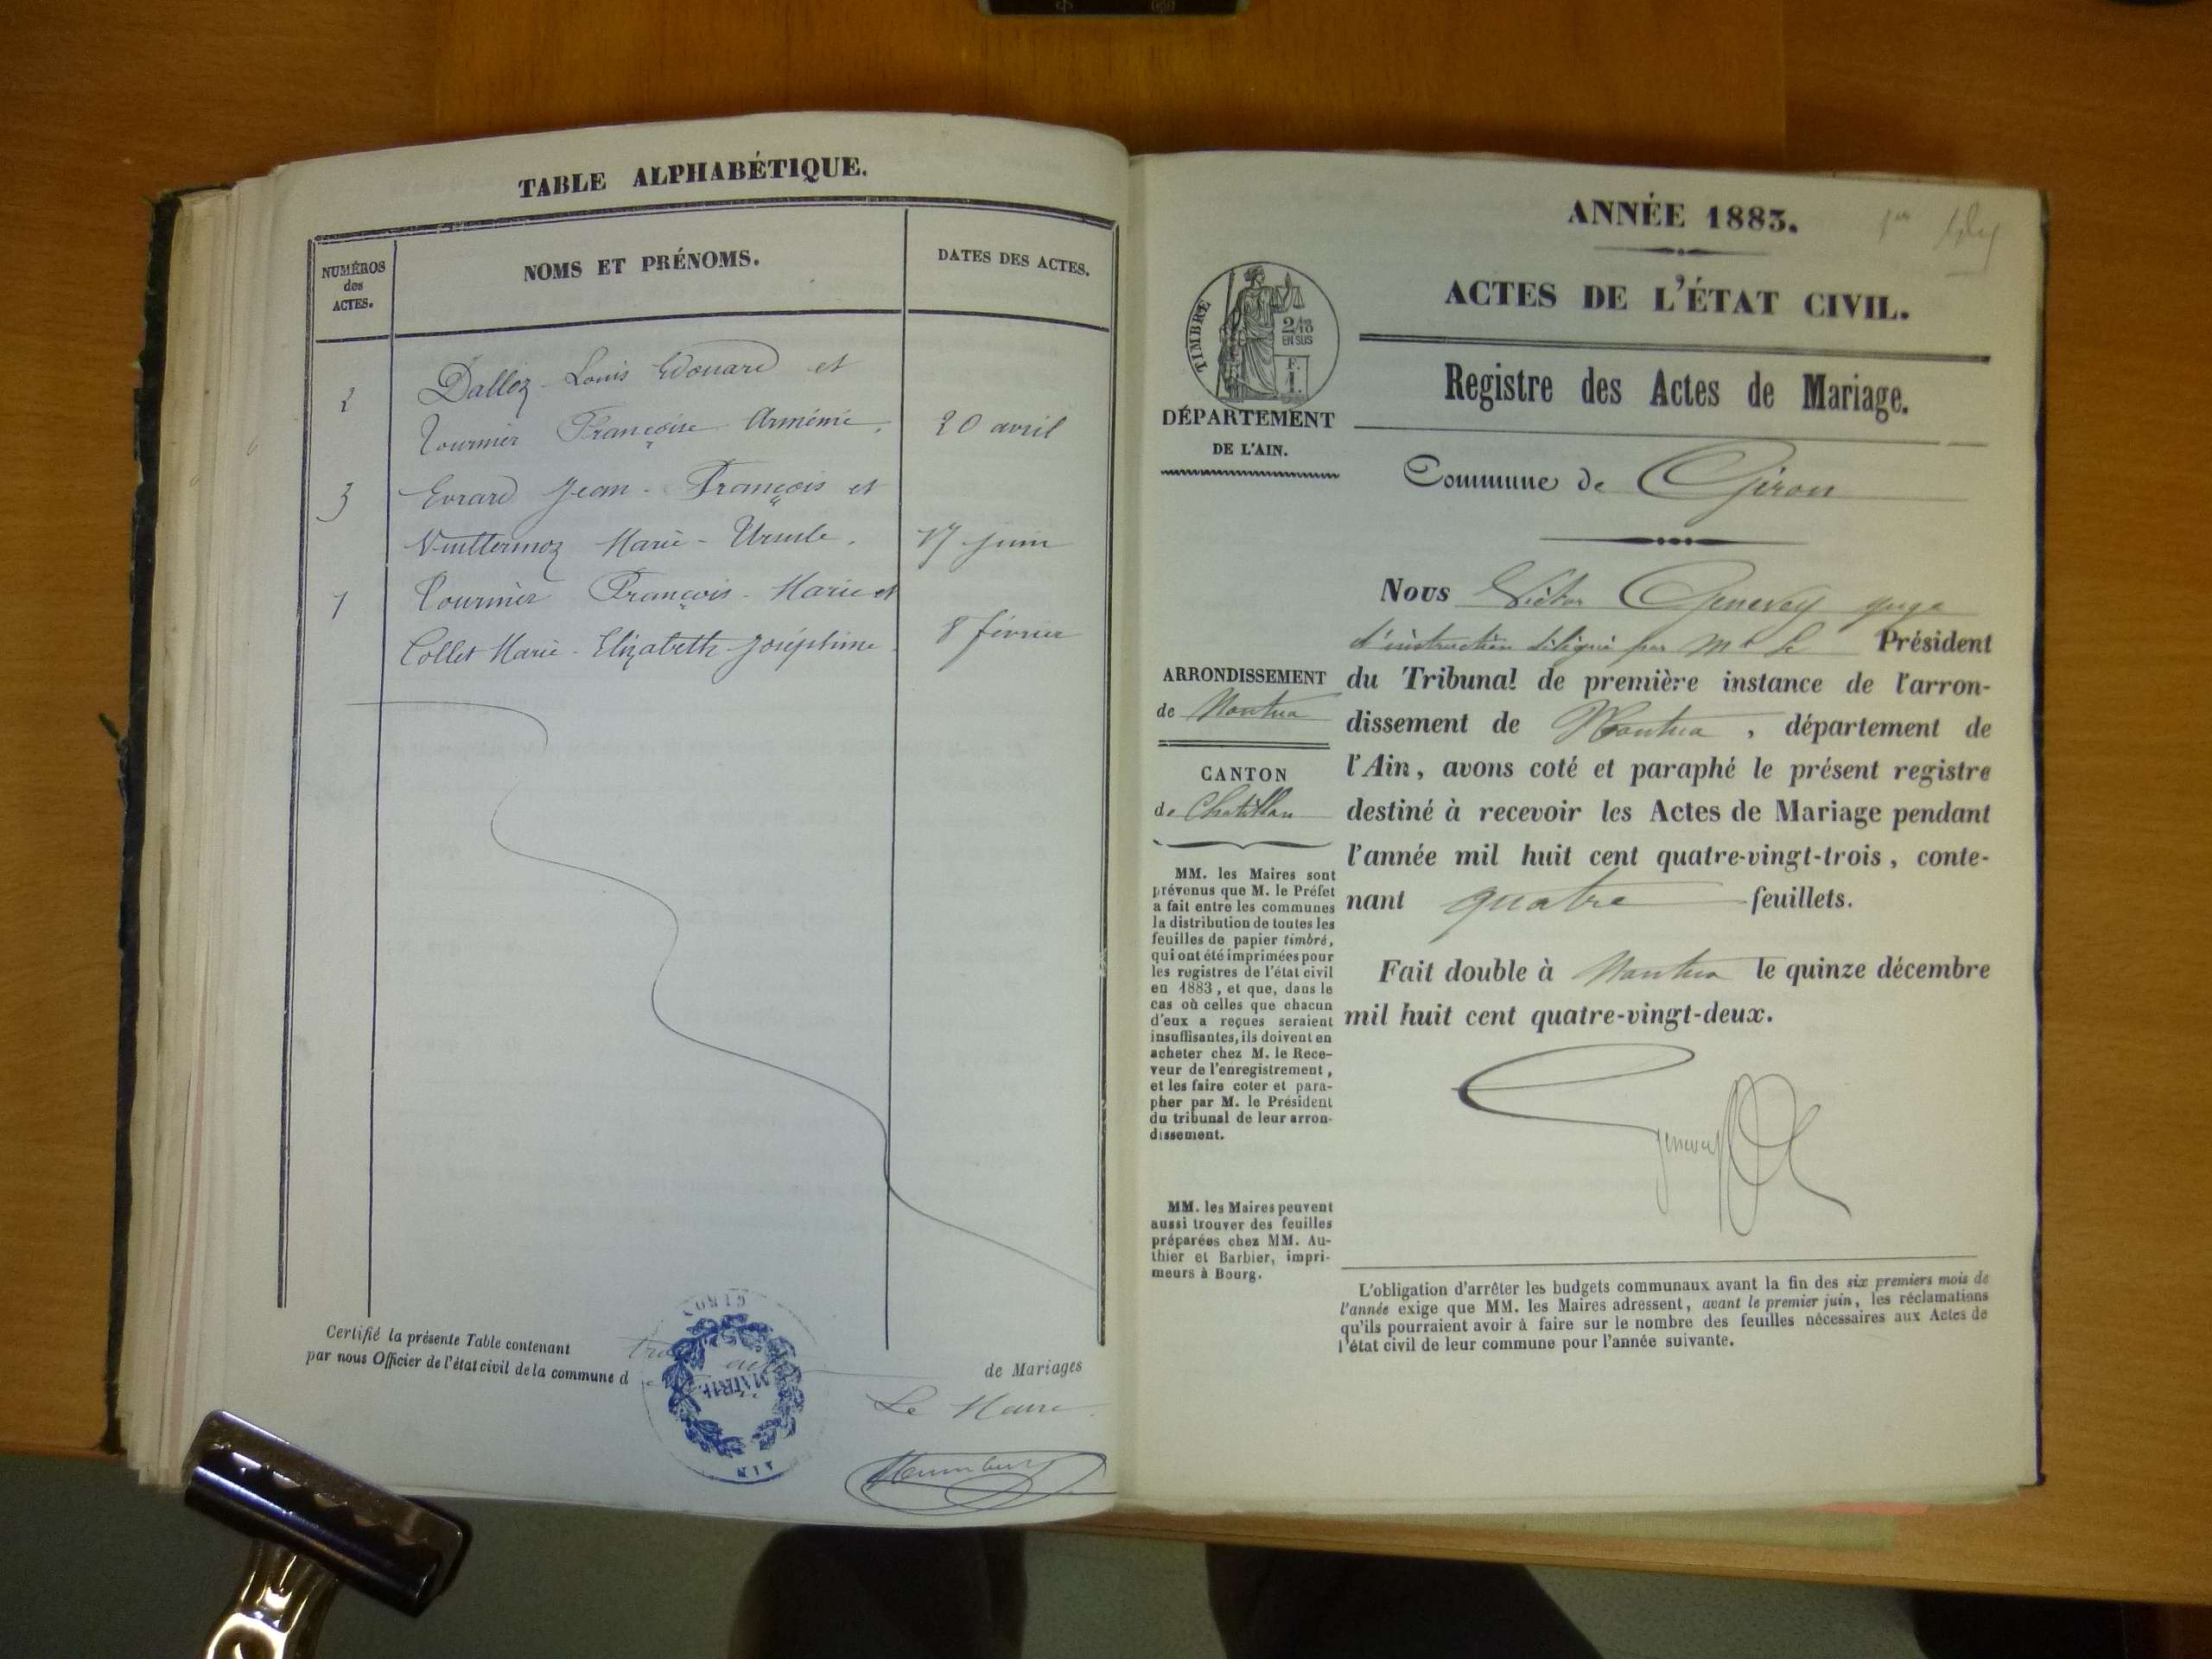 TABLE ALPHABÉTIQUE.
NUMÉROS
des
ACTES.
NOMS ET PRÉNOMS.
DATES DES ACTES.
2
Dalloz Louis Edouard et
Tournier Françoise Arménie.
20 avril
3
Evrard Jean-François et
Vuillermoz Marie-Ursule.
17 juin
1
Tournier François-Marie et
Collet Marie-Elizabeth Joséphine
8 février
Certifié la présente Table contenant
de Mariages
par nous Officier de l'état civil de la commune d
GIRON
MAIRIE
AIN
Le Maire
ANNÉE 1883.
1er
ACTES DE L'ÉTAT CIVIL.
TIMBRE
2/10
EN SUS
F.
1.
DÉPARTEMENT
DE L'AIN.
Registre des Actes de Mariage.
Commune de Giron
Nous Victor Genevey juge
d'instruction délégué par Mr Le Président
du Tribunal de première instance de l'arron-
dissement de Nantua, département de
l'Ain, avons coté et paraphé le présent registre
destiné à recevoir les Actes de Mariage pendant
l'année mil huit cent quatre-vingt-trois, conte-
nant quatre feuillets.
Fait double à Nantua le quinze décembre
mil huit cent quatre-vingt-deux.
Genevey
ARRONDISSEMENT
de Nantua
CANTON
de Chatillon
MM. les Maires sont
prévenus que M. le Préfet
a fait entre les communes
la distribution de toutes les
feuilles de papier timbré,
qui ont été imprimées pour
les registres de l'état civil
en 1883, et que, dans le
cas où celles que chacun
d'eux a reçues seraient
insuffisantes, ils doivent en
acheter chez M. le Rece-
veur de l'enregistrement,
et les faire coter et para-
pher par M. le Président
du tribunal de leur arron-
dissement.
MM. les Maires peuvent
aussi trouver des feuilles
préparées chez MM. Au-
thier et Barbier, impri-
meurs à Bourg.
L'obligation d'arrêter les budgets communaux avant la fin des six premiers mois de
l'année exige que MM. les Maires adressent, avant le premier juin, les réclamations
qu'ils pourraient avoir à faire sur le nombre des feuilles nécessaires aux Actes de
l'état civil de leur commune pour l'année suivante.